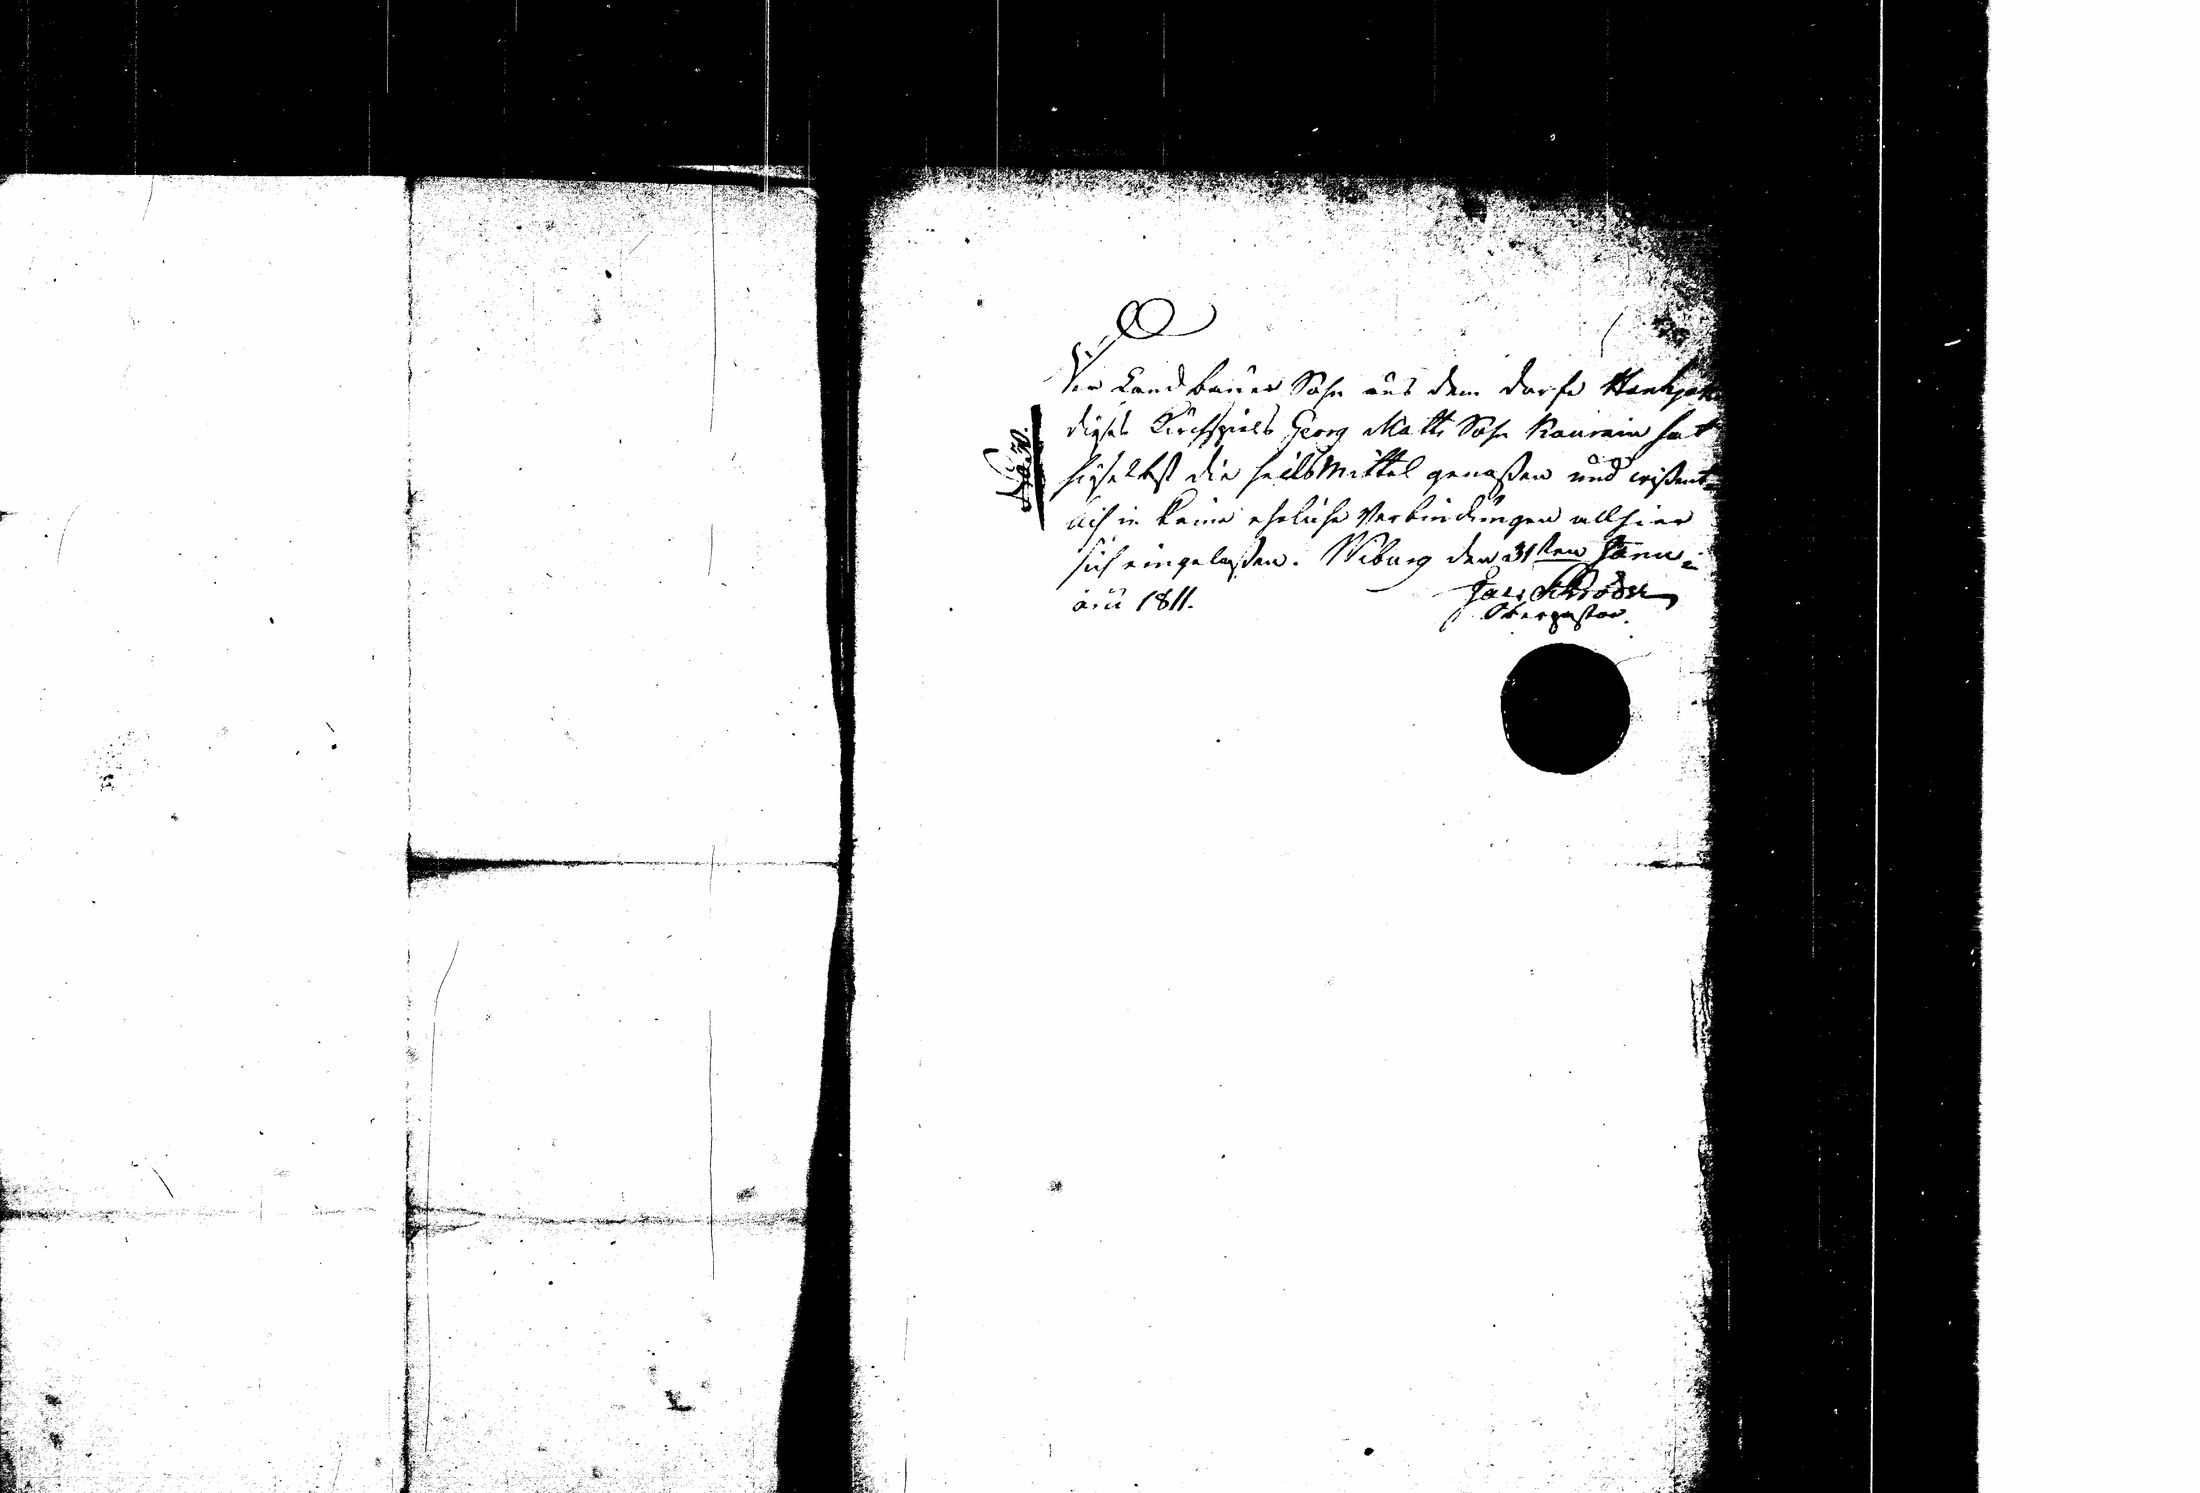 Der Landbauer Sohn aus dem Dorfe
dieses Kirchspiels Georg Matts Sohn Raunein hat
hieselbst die heilsMittel genoßen und wißent-
lich in keine eheliche Verbindungen allhier
sich eingelaßen. Wiburg den 31sten Janu-
arii 1811.
Schröder
Oberpastor.